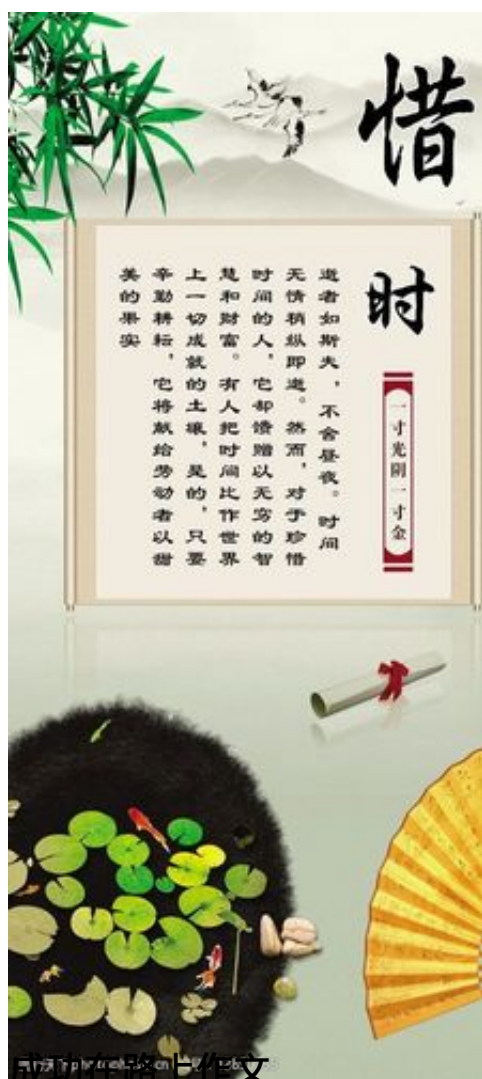 惜时
一寸光阴一寸金
逝者如斯夫，不舍昼夜。时间
无情稍纵即逝。然而，对于珍惜
时间的人，它却馈赠以无穷的智
慧和财富。有人把时间比作世界
上一切成就的土壤，是的，只要
辛勤耕耘，它将献给劳动者以甜
美的果实
成功在路上作文